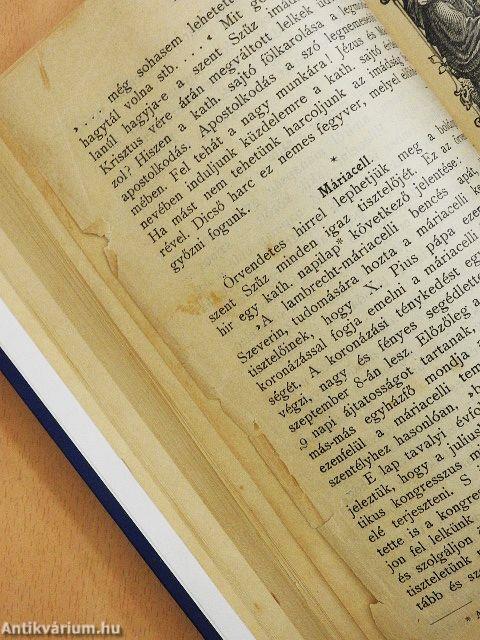 ›. . . . még sohasem lehetete
hagytál volna stb. . . . . ‹ Mit
lanúl hagyja-e a szent Szűz imád
Krisztus vére árán megváltott lelkek üd
zol? Hiszen a kath. sajtó fölkarolása a legna
apostolkodás. Apostolkodás a szó legnemeseb
mében. Fel tehát a nagy munkára! Jézus és
nevében induljunk küzdelemre a kath. sajtó érd
Ha mást nem tehetünk harcoljunk az imádság
rével. Dicső harc ez nemes fegyver, melyel
győzni fogunk.
*
Máriacell.
Örvendetes hirrel lephetjük meg a
szent Szűz minden igaz tisztelőjét. Ez az
hir egy kath. napilap* következő jelentése:
›A lambrecht-máriacelli bencés apát
Szeverin, tudomására hozta a máriacelli
tisztelőinek, hogy X. Pius Pápa
koronázással fogja emelni a máriacelli
ségét. A koronázási ténykedést
végzi, nagy és fényes segédlettel
szeptember 8-án lesz. Előzőleg a
9 napi ájtatosságot tartanak,
más-más egyházfő mondja
ezenfelül a máriacelli
szentélyhez hasonlóan,
E lap tavalyi
jeleztük, hogy a julius
tikus kongresszus
elé terjeszteni. S
tette is a
jon fel lelkünk
és szolgáljon
tiszteletünk
tább és
* A
Antikvárium.hu